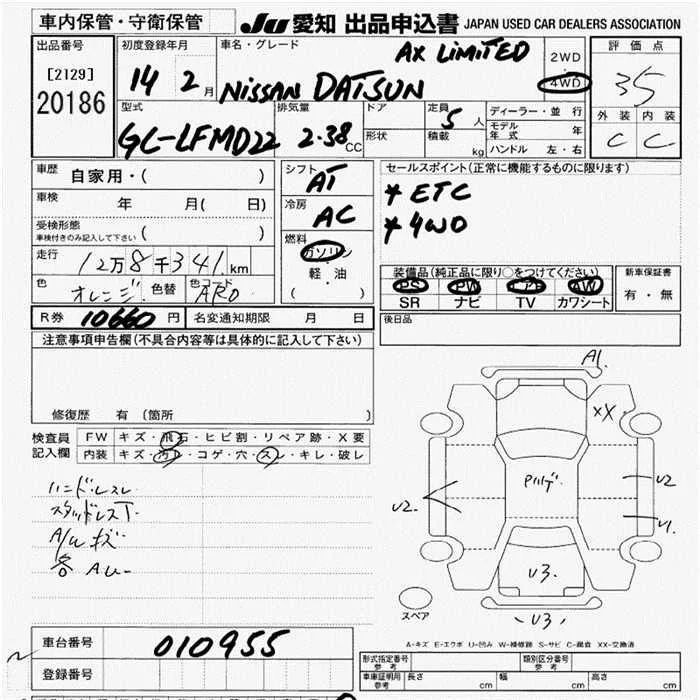 車内保管・守衛保管
JU 愛知 出品申込書 JAPAN USED CAR DEALERS ASSOCIATION
出品番号
[2129]
20186
初度登録年月
14 2 月
車名・グレード
AX LIMITED
NISSAN DATSUN
2WD
・
4WD
評価点
35
外装 内装
C C
型式
GC-LFMD22
排気量
2.38 CC
ドア
形状
定員
5 人
積載
kg
ディーラー・並行
モデル年式 年
ハンドル 左・右
車歴
自家用・( )
車検
年 月( 日)
受検形態
車検付きのみ記入して下さい ( )
走行
12万8千341 km
色
オレンジ
色替
色コード
ARO
シフト
AT
冷房
AC
燃料
ガソリン
軽・油
( )
セールスポイント(正常に機能するものに限ります)
* ETC
* 4WD
装備品(純正品に限り○をつけてください)
PS PW エアB AW
SR ナビ TV カワシート
新車保証書
有・無
R券 10660 円 名変通知期限 月 日
後日品
注意事項申告欄(不具合内容等は具体的に記入して下さい)
修復歴 有 〔箇所 〕
検査員
記入欄
FW キズ・飛石・ヒビ割・リペア跡・X要
内装 キズ・汚レ・コゲ・穴・スレ・キレ・破レ
ハンドルスレ
A/W キズ
各 AU-
A1.
XX
U2.
U2
U1.
U3.
U3
スペア
A-キズ E-エクボ U-凹み W-補修跡 S-サビ C-腐食 XX-交換済
車台番号 010955
登録番号
形式指定番号
参考
類別区分番号
参考
車庫証明用
参考
長さ cm 幅 cm 高さ cm